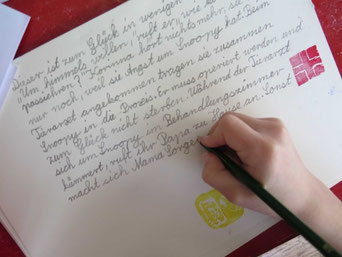 Dieser ist zum Glück in wenigen
"Um Himmels willen", ruft er, "wie
passieren?" Hört nichts mehr, sie
nur noch, weil sie Angst um Snoopy hat. Beim
Tierarzt angekommen tragen sie zusammen
Snoopy in die Praxis. Er muss operiert werden und
zum Glück nicht sterben. Während der Tierarzt
sich um Snoopy im Behandlungszimmer
kümmert, ruft ihr Papa zu Hause an. Sonst
macht sich Mama Sorge